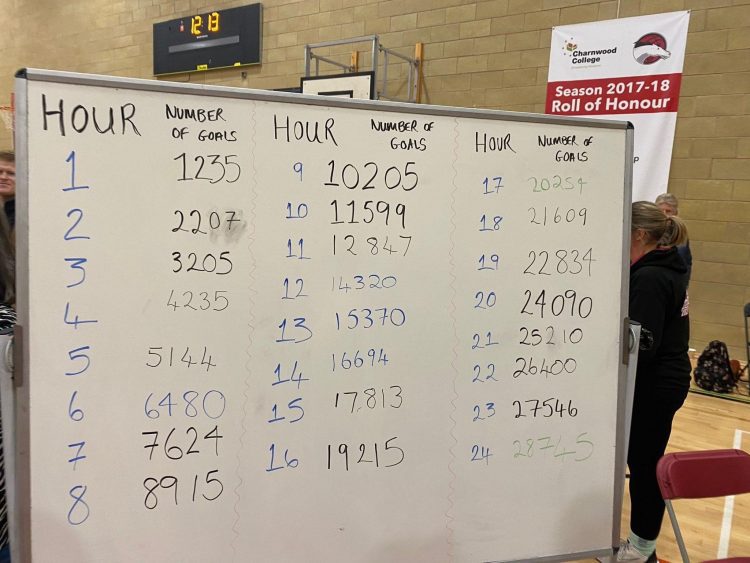 12:13
Charnwood
College
Season 2017-18
Roll of Honour
HOUR NUMBER OF GOALS
1 1235
2 2207
3 3205
4 4235
5 5144
6 6480
7 7624
8 8915
HOUR NUMBER OF GOALS
9 10205
10 11599
11 12847
12 14320
13 15370
14 16694
15 17,813
16 19215
HOUR NUMBER OF GOALS
17 20254
18 21609
19 22834
20 24090
21 25210
22 26400
23 27546
24 28745